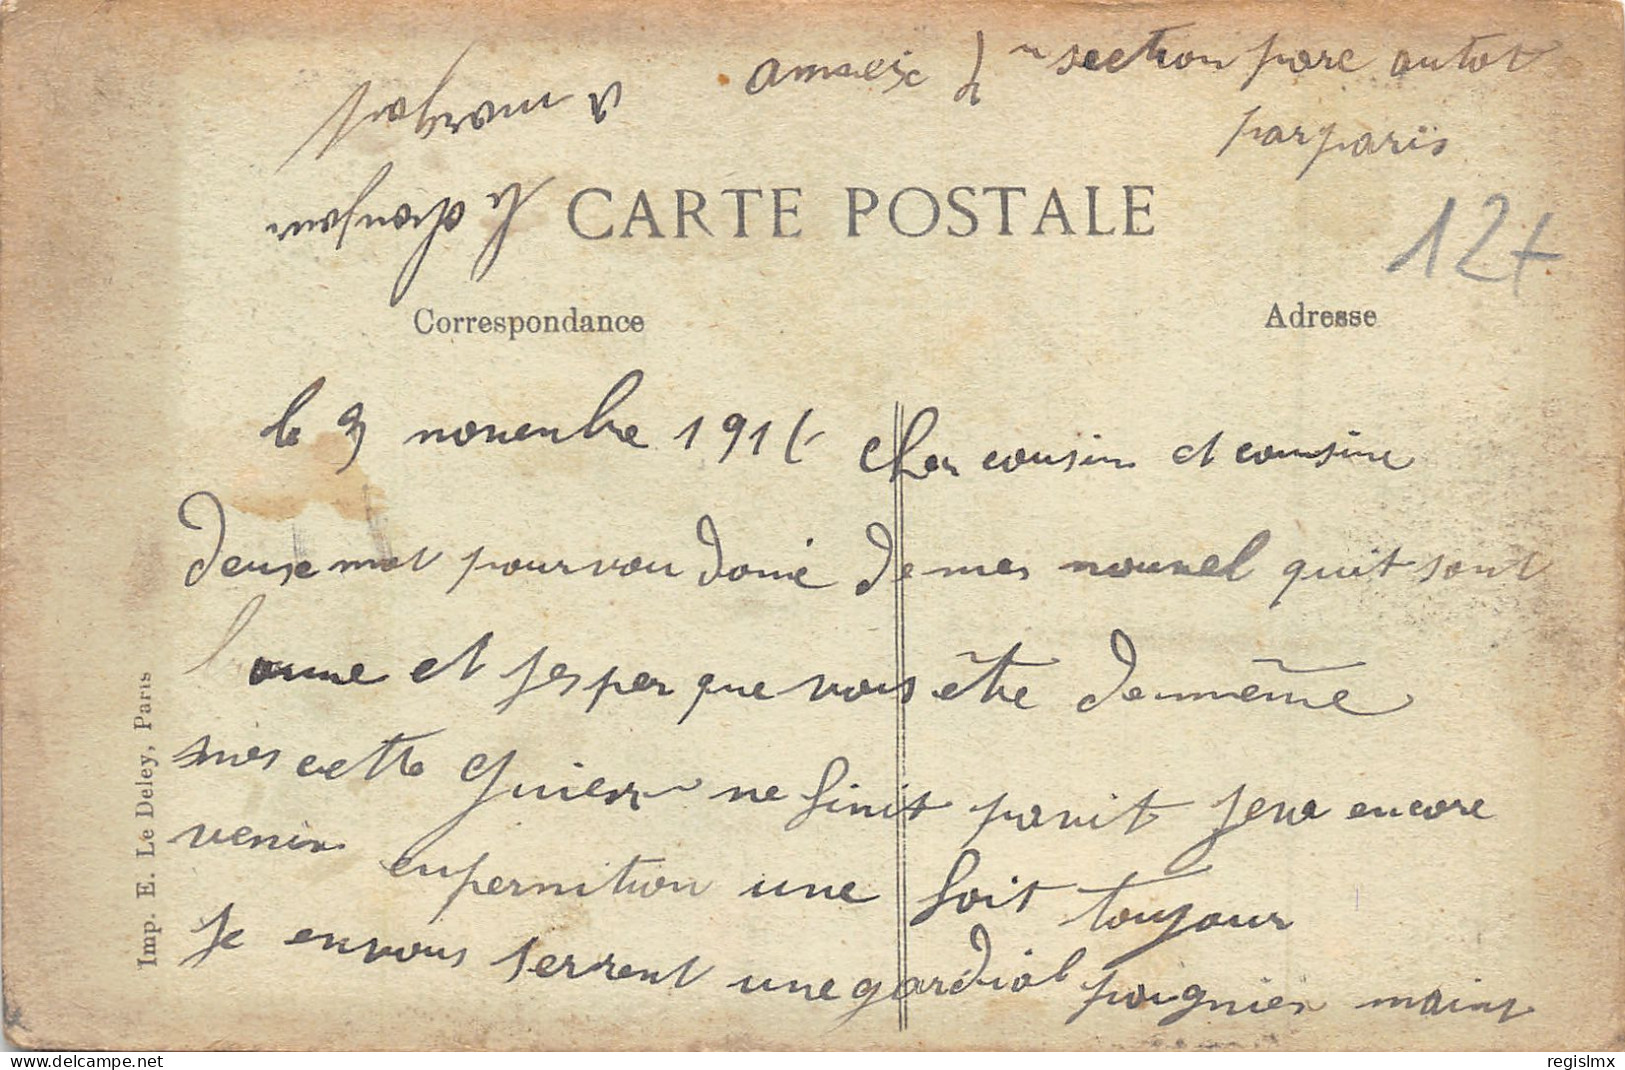 section parc autot
par paris
CARTE POSTALE
12+
Correspondance
Adresse
le 9 novenbre 191 cher cousin et cousine
deuse mot pour vou donné de mes nouvel quit sont
bonne et jesper que vous être de même
mes cette guierr ne finit pa
vit jena encore
venir enpermition une foit toujour
Je envous serrent une gardial poignier maint
Imp. E. Le Deley, Paris
regislmx